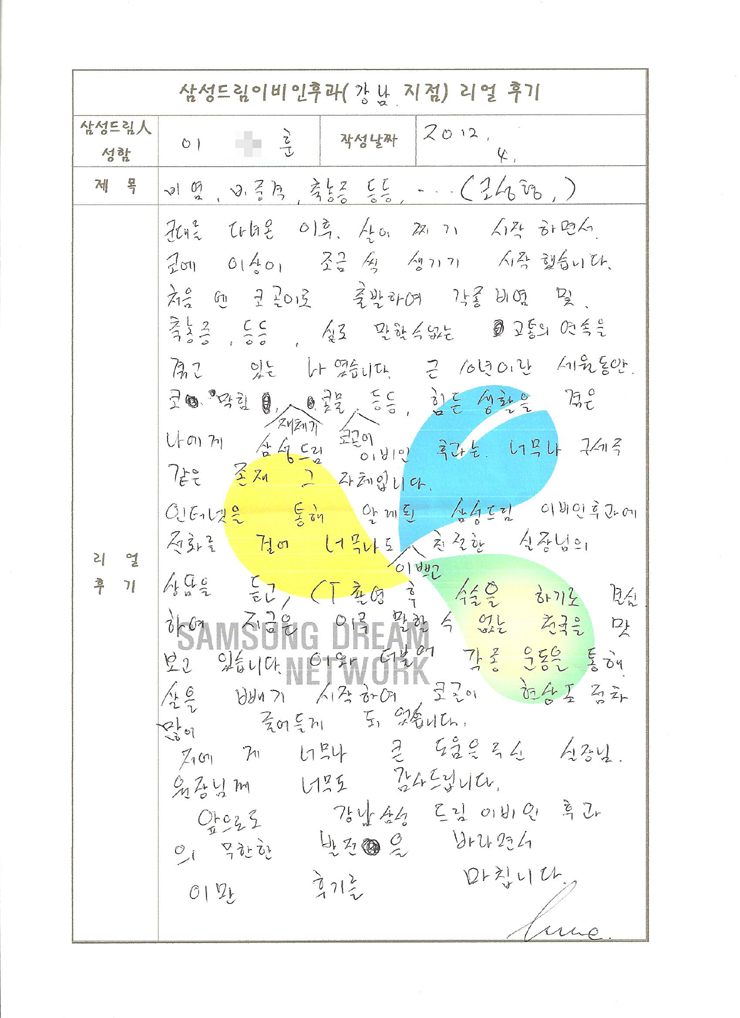 삼성드림이비인후과(강남 지점) 리얼 후기
삼성드림人 성함
이 훈
작성날짜
2012. 4.
제 목
비염, 비중격, 축농증 등등, ... (코성형,)
리 얼 후 기
군대를 다녀온 이후. 살이 찌기 시작 하면서.
코에 이상이 조금 씩 생기기 시작했습니다.
처음 엔 코골이로 출발하여 각종 비염 및.
축농증, 등등, 실로 말할수없는 고통의 연속을
겪고 있는 나 였습니다. 근 10년이란 세월동안.
코 막힘, 재체기 콧물, 코골이 등등, 힘든 생활을 겪은
나에게 삼성드림 이비인 후과는. 너무나 구세주
같은 존재 그 자체입니다.
인터넷을 통해 알게된 삼성드림 이비인후과에
전화를 걸어 너무나도 이쁘고 친절한 실장님의
상담을 듣고, CT 촬영 후 수술을 하기로 결심.
하여 지금은 이루 말할 수 없는 천국을 맛
보고 있습니다. 이와 더불어 각종 운동을 통해.
살을 빼기 시작하여 코골이 현상도 점차
많이 줄어들게 되었습니다.
저에 게 너무나 큰 도움을주신 실장님.
원장님께 너무도 감사드립니다.
앞으로도 강남삼성 드림이비인 후과
의 무한한 발전을 바라면서
이만 후기를 마칩니다.
SAMSONG DREAM
NETWORK